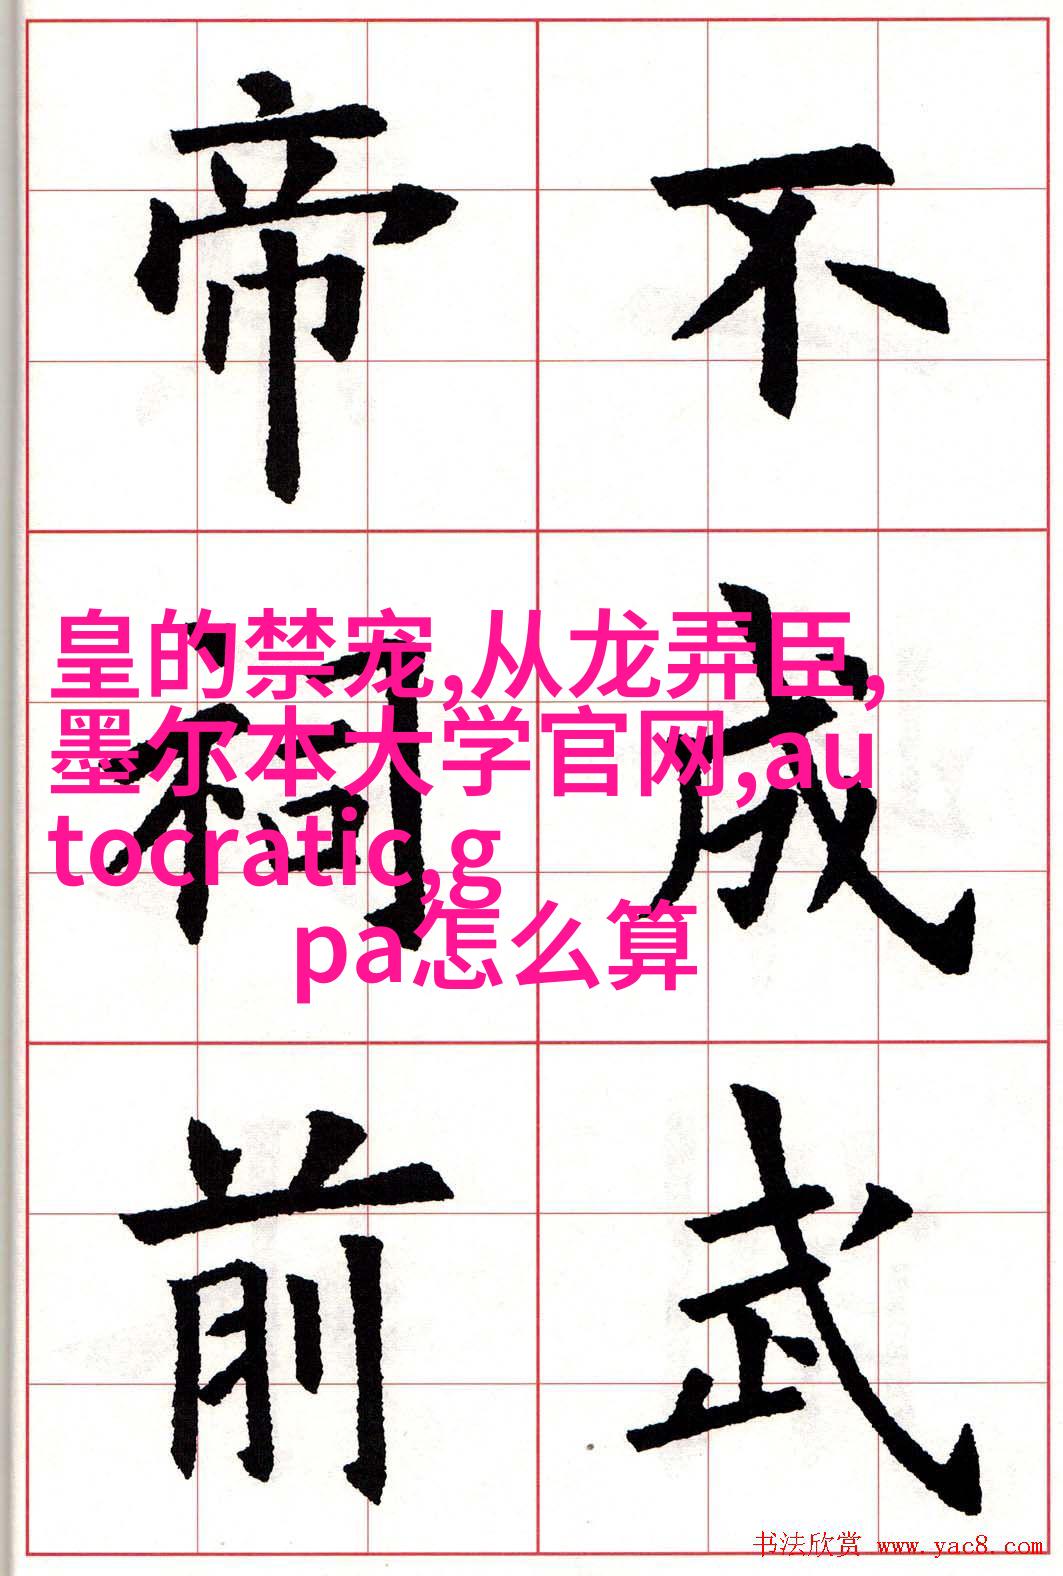 不成武
帝祠前
皇的禁宠,从龙弄臣,
墨尔本大学官网,au
tocratic,g
pa怎么算
书法欣赏 www.yac8.com